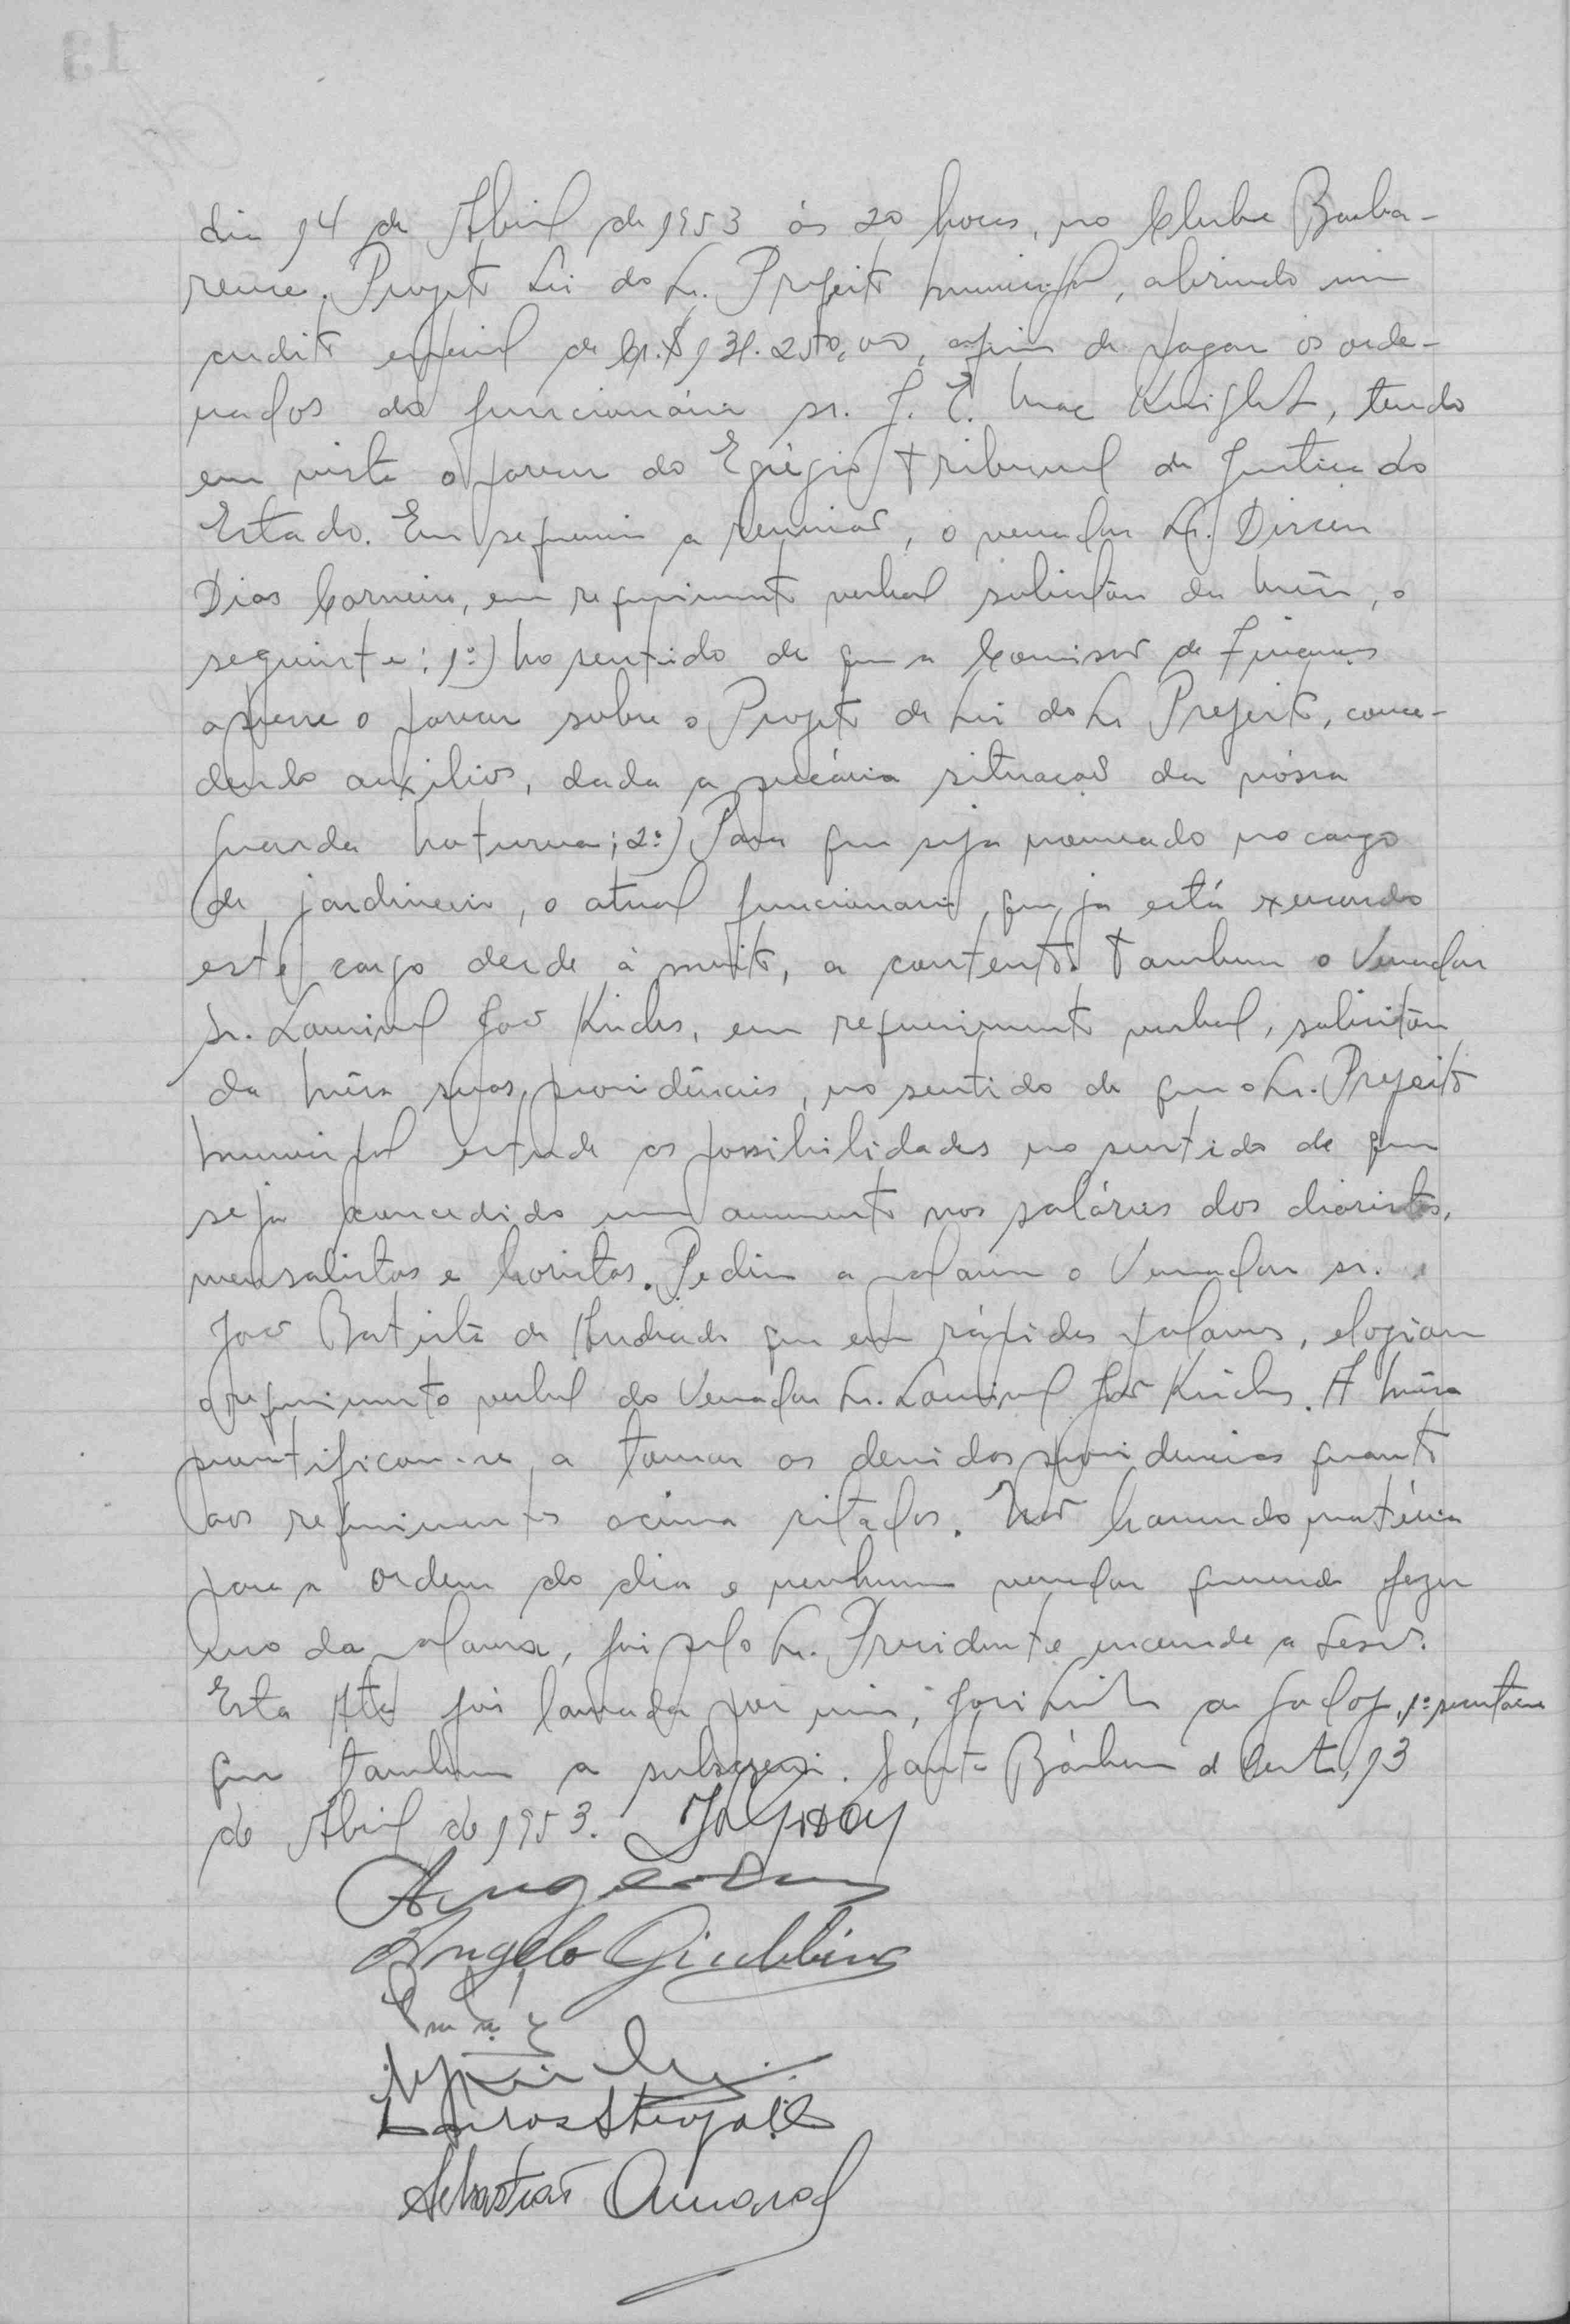 dia 14 de Abril de 1953 ás 20 horas, no Clube Barba-
rense. Projeto Lei do Sr. Prefeito Municipal, abrindo um
credito especial de Cr.$ 131.250,00, afim de pagar os orde-
nados do funcionário sr. J. E. Mac Knight, tendo
em vista o parecer do Egrégio Tribunal de Justiça do
Estado. Em sequencia a reunião, o vereador Sr. Dirceu
Dias Carneiro, em requerimento verbal solicitou da Mêsa, o
seguinte: 1º) No sentido de que a Comissão de Finanças
apresse o parecer sobre o Projeto de Lei do Sr Prefeito, conce-
dendo auxilios, dada a precária situação da nóssa
guarda Noturna; 2º) Para que seja nomeado no cargo
de jardineiro, o atual funcionario, que ja está exercendo
este cargo desde á muito, a contento. Tambem o Vereador
sr. Lourival João Kirches, em requerimento verbal, solicitou
da Mêsa suas providências, no sentido de que o Sr. Prefeito
Municipal estude as possibilidades no sentido de que
seja concedido um aumento nos salários dos diaristas,
mensalistas e horistas. Pediu a palavra o Vereador sr.
João Batista de Andrade que em rápidas palavras, elogiou
o requerimento verbal do Vereador Sr. Lourival João Kirches. A Mêsa
prontificou-se, a tomar as devidas providencias quanto
aos requerimentos acima citados. Não havendo matéria
para a ordem do dia e nenhum vereador querendo fazer
uso da palavra, foi pelo Sr. Presidente encerrada a Sessão.
Esta Ata foi lavrada por mim, José Luiz de Godoy, 1º secretário
que tambem a subscrevi. Santa Bárbara d'Oeste, 13
de Abril de 1953. JLGodoy
Angelo Giubbina
Sebastião Amaral